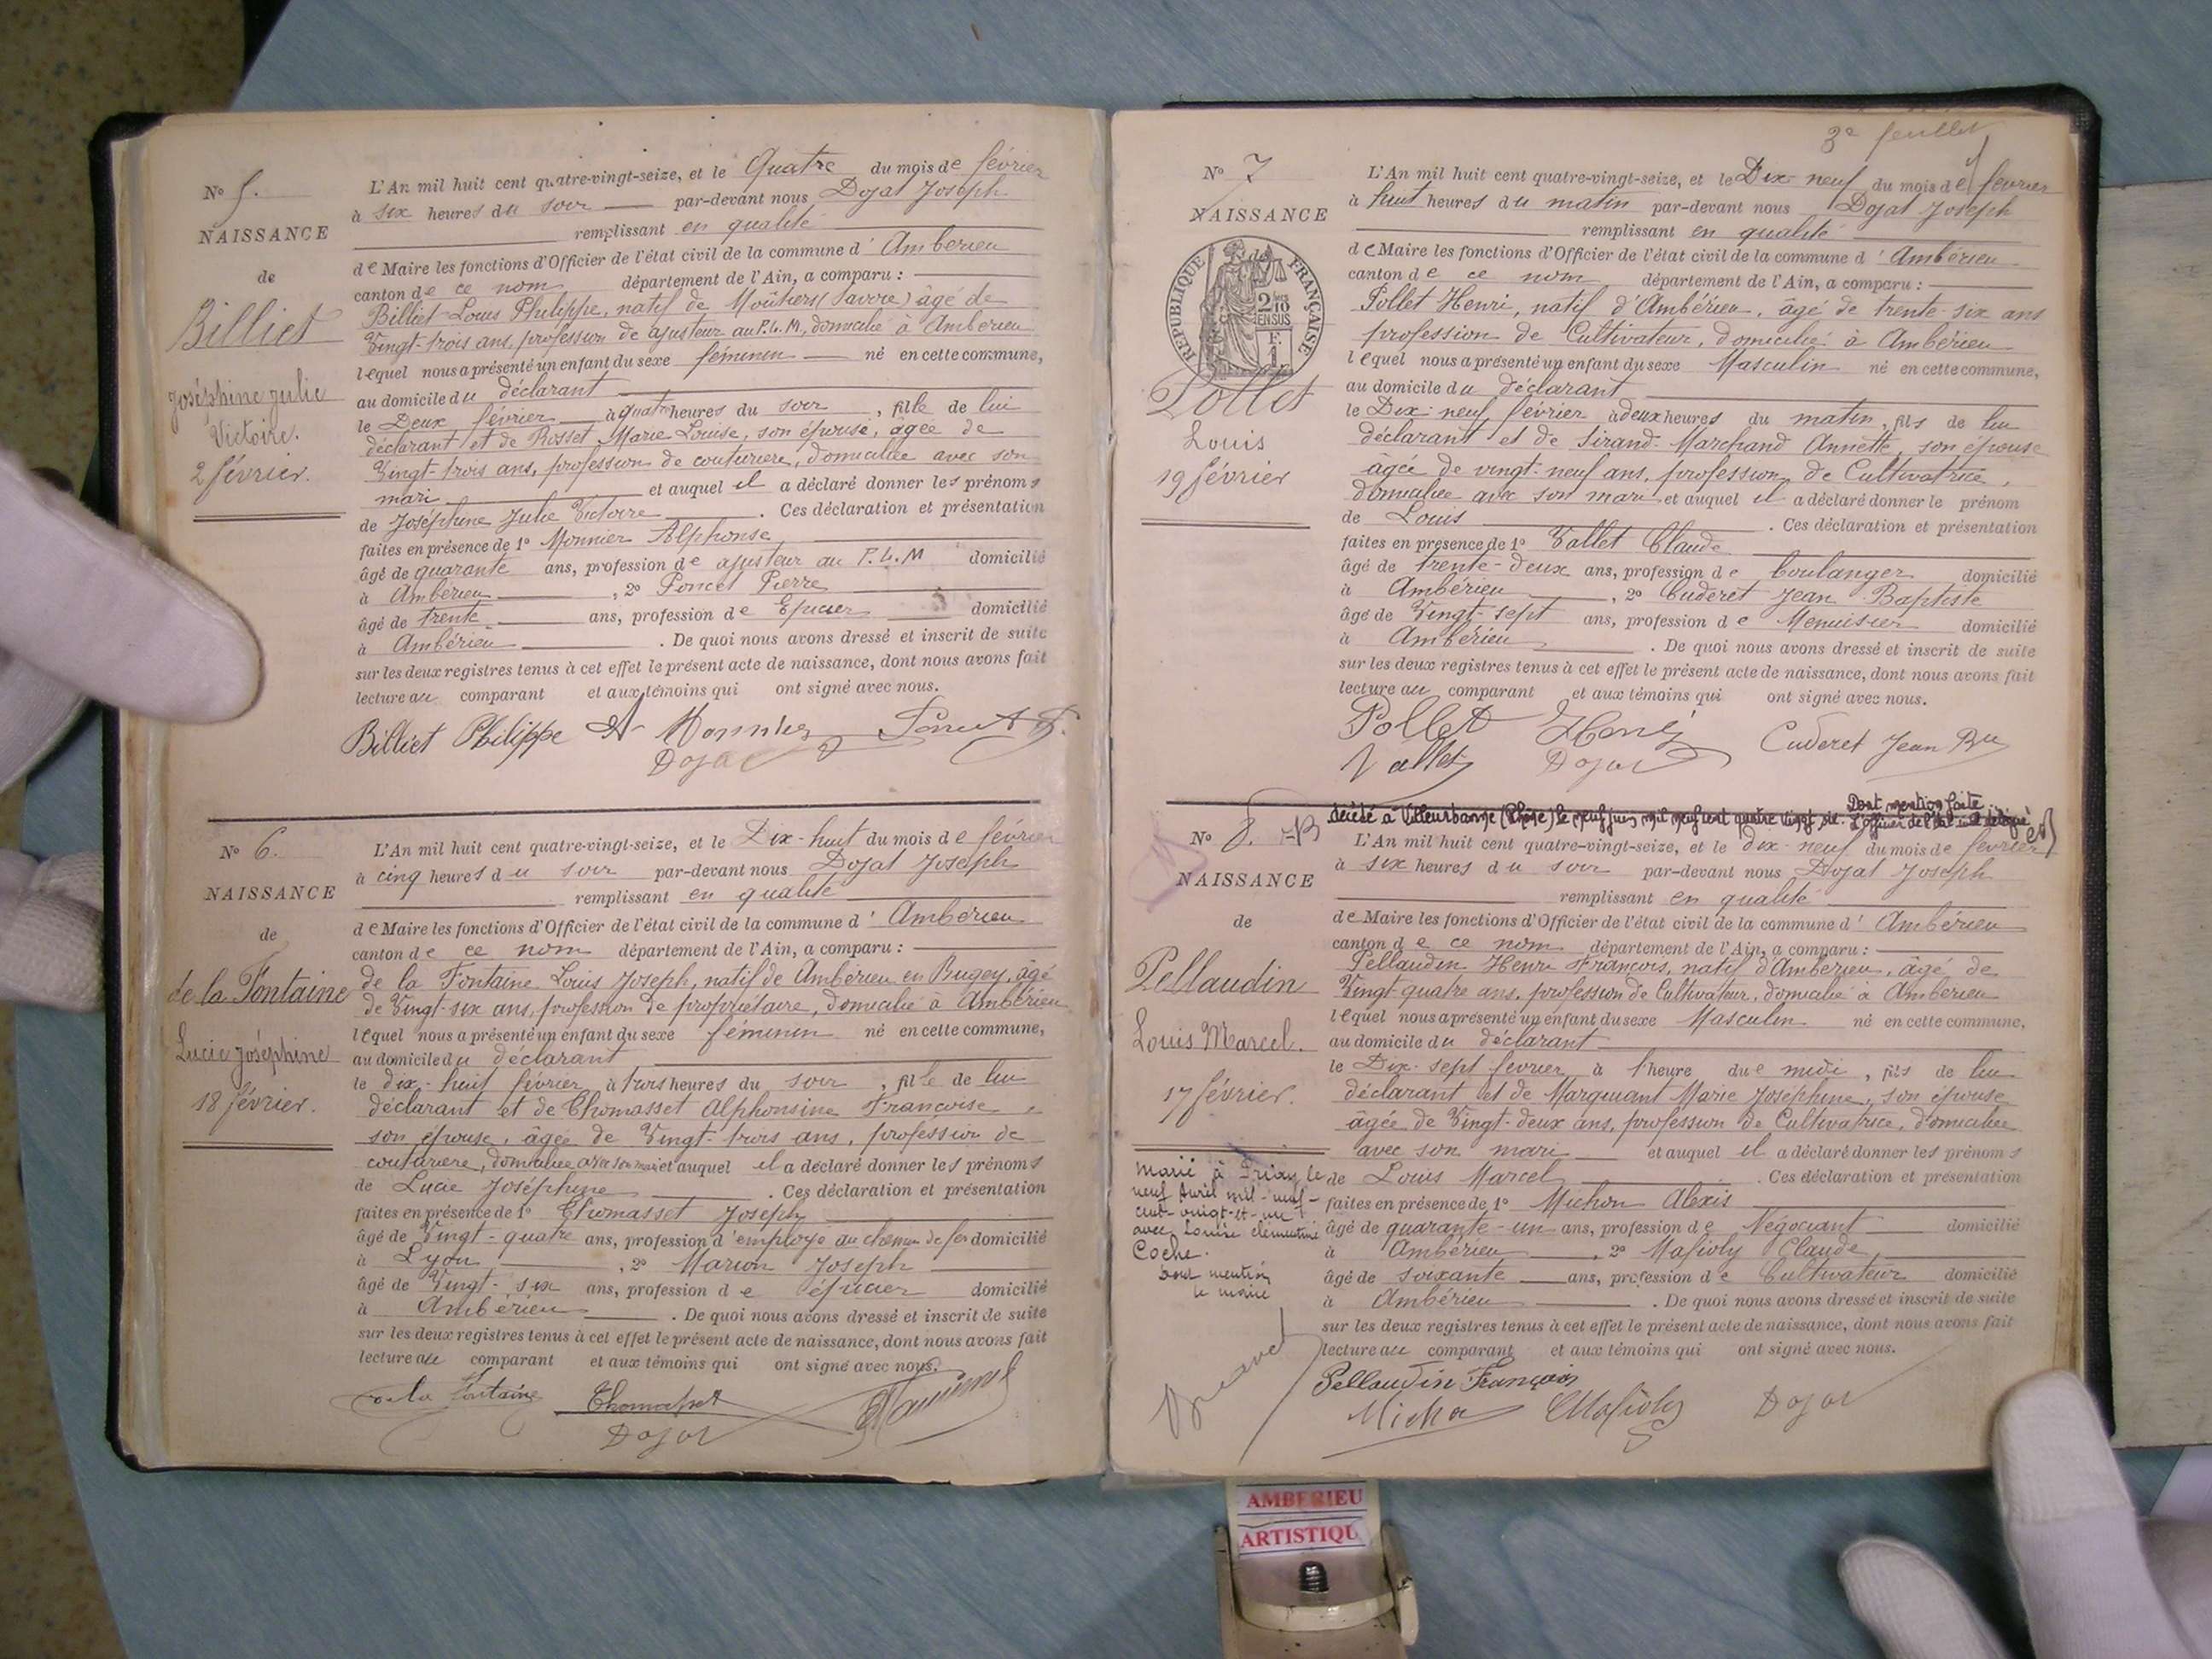 N° 5.
NAISSANCE
de
Billiet
Joséphine Julie
Victoire.
2 février.
L'An mil huit cent quatre-vingt-seize, et le Quatre du mois de février
à six heures du soir par-devant nous Dojat Joseph
remplissant en qualité
de Maire les fonctions d'Officier de l'état civil de la commune d'Ambérieu
canton de ce nom département de l'Ain, a comparu :
Billiet Louis Philippe, natif de Moûtiers (Savoie) âgé de
Vingt-trois ans, profession de ajusteur au P.L.M, domicilié à Ambérieu
lequel nous a présenté un enfant du sexe féminin né en cette commune,
au domicile du déclarant
le Deux février à quatre heures du soir, fille de lui
déclarant et de Rosset Marie Louise, son épouse, âgée de
Vingt-trois ans, profession de couturière, domiciliée avec son
mari et auquel il a déclaré donner les prénoms
de Joséphine Julie Victoire. Ces déclaration et présentation
faites en présence de 1° Monnier Alphonse
âgé de quarante ans, profession de ajusteur au P.L.M domicilié
à Ambérieu, 2° Poncet Pierre
âgé de trente ans, profession de Epicier domicilié
à Ambérieu. De quoi nous avons dressé et inscrit de suite
sur les deux registres tenus à cet effet le présent acte de naissance, dont nous avons fait
lecture au comparant et aux témoins qui ont signé avec nous.
Billiet Philippe A Monnier Poncet P.
Dojat
N° 6.
NAISSANCE
de
de la Fontaine
Lucie Joséphine
18 février.
L'An mil huit cent quatre-vingt-seize, et le Dix-huit du mois de février
à cinq heures du soir par-devant nous Dojat Joseph
remplissant en qualité
de Maire les fonctions d'Officier de l'état civil de la commune d'Ambérieu
canton de ce nom département de l'Ain, a comparu :
de la Fontaine Louis Joseph, natif de Ambérieu en Bugey, âgé
de Vingt-six ans, profession de propriétaire, domicilié à Ambérieu
lequel nous a présenté un enfant du sexe féminin né en cette commune,
au domicile du déclarant
le dix-huit février à trois heures du soir, fille de lui
déclarant et de Thomasset Alphonsine Françoise,
son épouse, âgée de Vingt-trois ans, profession de
couturière, domiciliée avec son mari et auquel il a déclaré donner les prénoms
de Lucie Joséphine. Ces déclaration et présentation
faites en présence de 1° Thomasset Joseph
âgé de Vingt-quatre ans, profession d'employé au chemin de fer domicilié
à Lyon, 2° Marion Joseph
âgé de Vingt-six ans, profession de épicier domicilié
à Ambérieu. De quoi nous avons dressé et inscrit de suite
sur les deux registres tenus à cet effet le présent acte de naissance, dont nous avons fait
lecture au comparant et aux témoins qui ont signé avec nous.
de la Fontaine Thomasset
Dojat
3e feuillet
N° 7
NAISSANCE
de
RÉPUBLIQUE FRANÇAISE
Pollet
Louis
19 février
L'An mil huit cent quatre-vingt-seize, et le Dix-neuf du mois de février
à huit heures du matin par-devant nous Dojat Joseph
remplissant en qualité
de Maire les fonctions d'Officier de l'état civil de la commune d'Ambérieu
canton de ce nom département de l'Ain, a comparu :
Pollet Henri, natif d'Ambérieu, âgé de trente-six ans
profession de Cultivateur, domicilié à Ambérieu
lequel nous a présenté un enfant du sexe Masculin né en cette commune,
au domicile du déclarant
le Dix-neuf février à deux heures du matin, fils de lui
déclarant et de Sirand-Marchand Annette, son épouse
âgée de vingt-neuf ans, profession de Cultivatrice,
domiciliée avec son mari et auquel il a déclaré donner le prénom
de Louis. Ces déclaration et présentation
faites en présence de 1° Vallet Claude
âgé de trente-deux ans, profession de boulanger domicilié
à Ambérieu, 2° Cuderet Jean Baptiste
âgé de Vingt-sept ans, profession de Menuisier domicilié
à Ambérieu. De quoi nous avons dressé et inscrit de suite
sur les deux registres tenus à cet effet le présent acte de naissance, dont nous avons fait
lecture au comparant et aux témoins qui ont signé avec nous.
Pollet Henri Cuderet Jean Bte
Vallet Dojat
décédé à Villeurbanne (Rhône) le neuf juin mil neuf cent quatre vingt six. Dont mention faite
L'officier de l'état civil délégué
N° 8.
NAISSANCE
de
Pellaudin
Louis Marcel.
17 février.
Marié à Priay le
neuf Avril mil-neuf-
cent-vingt-et-un
avec Louise clémentine
Coche.
Dont mention
le maire
L'An mil huit cent quatre-vingt-seize, et le dix-neuf du mois de février
à six heures du soir par-devant nous Dojat Joseph
remplissant en qualité
de Maire les fonctions d'Officier de l'état civil de la commune d'Ambérieu
canton de ce nom département de l'Ain, a comparu :
Pellaudin Henri François, natif d'Ambérieu, âgé de
Vingt-quatre ans, profession de Cultivateur, domicilié à Ambérieu
lequel nous a présenté un enfant du sexe Masculin né en cette commune,
au domicile du déclarant
le Dix-sept février à 1 heure due midi, fils de lui
déclarant et de Marguiant Marie Joséphine, son épouse
âgée de Vingt-deux ans, profession de Cultivatrice, domiciliée
avec son mari et auquel il a déclaré donner les prénoms
de Louis Marcel. Ces déclaration et présentation
faites en présence de 1° Michon Alexis
âgé de quarante-un ans, profession de Négociant domicilié
à Ambérieu, 2° Mafioly Claude,
âgé de soixante ans, profession de Cultivateur domicilié
à Ambérieu. De quoi nous avons dressé et inscrit de suite
sur les deux registres tenus à cet effet le présent acte de naissance, dont nous avons fait
lecture au comparant et aux témoins qui ont signé avec nous.
Pellaudin François
Michon CMafioly Dojat
AMBERIEU
ARTISTIQU